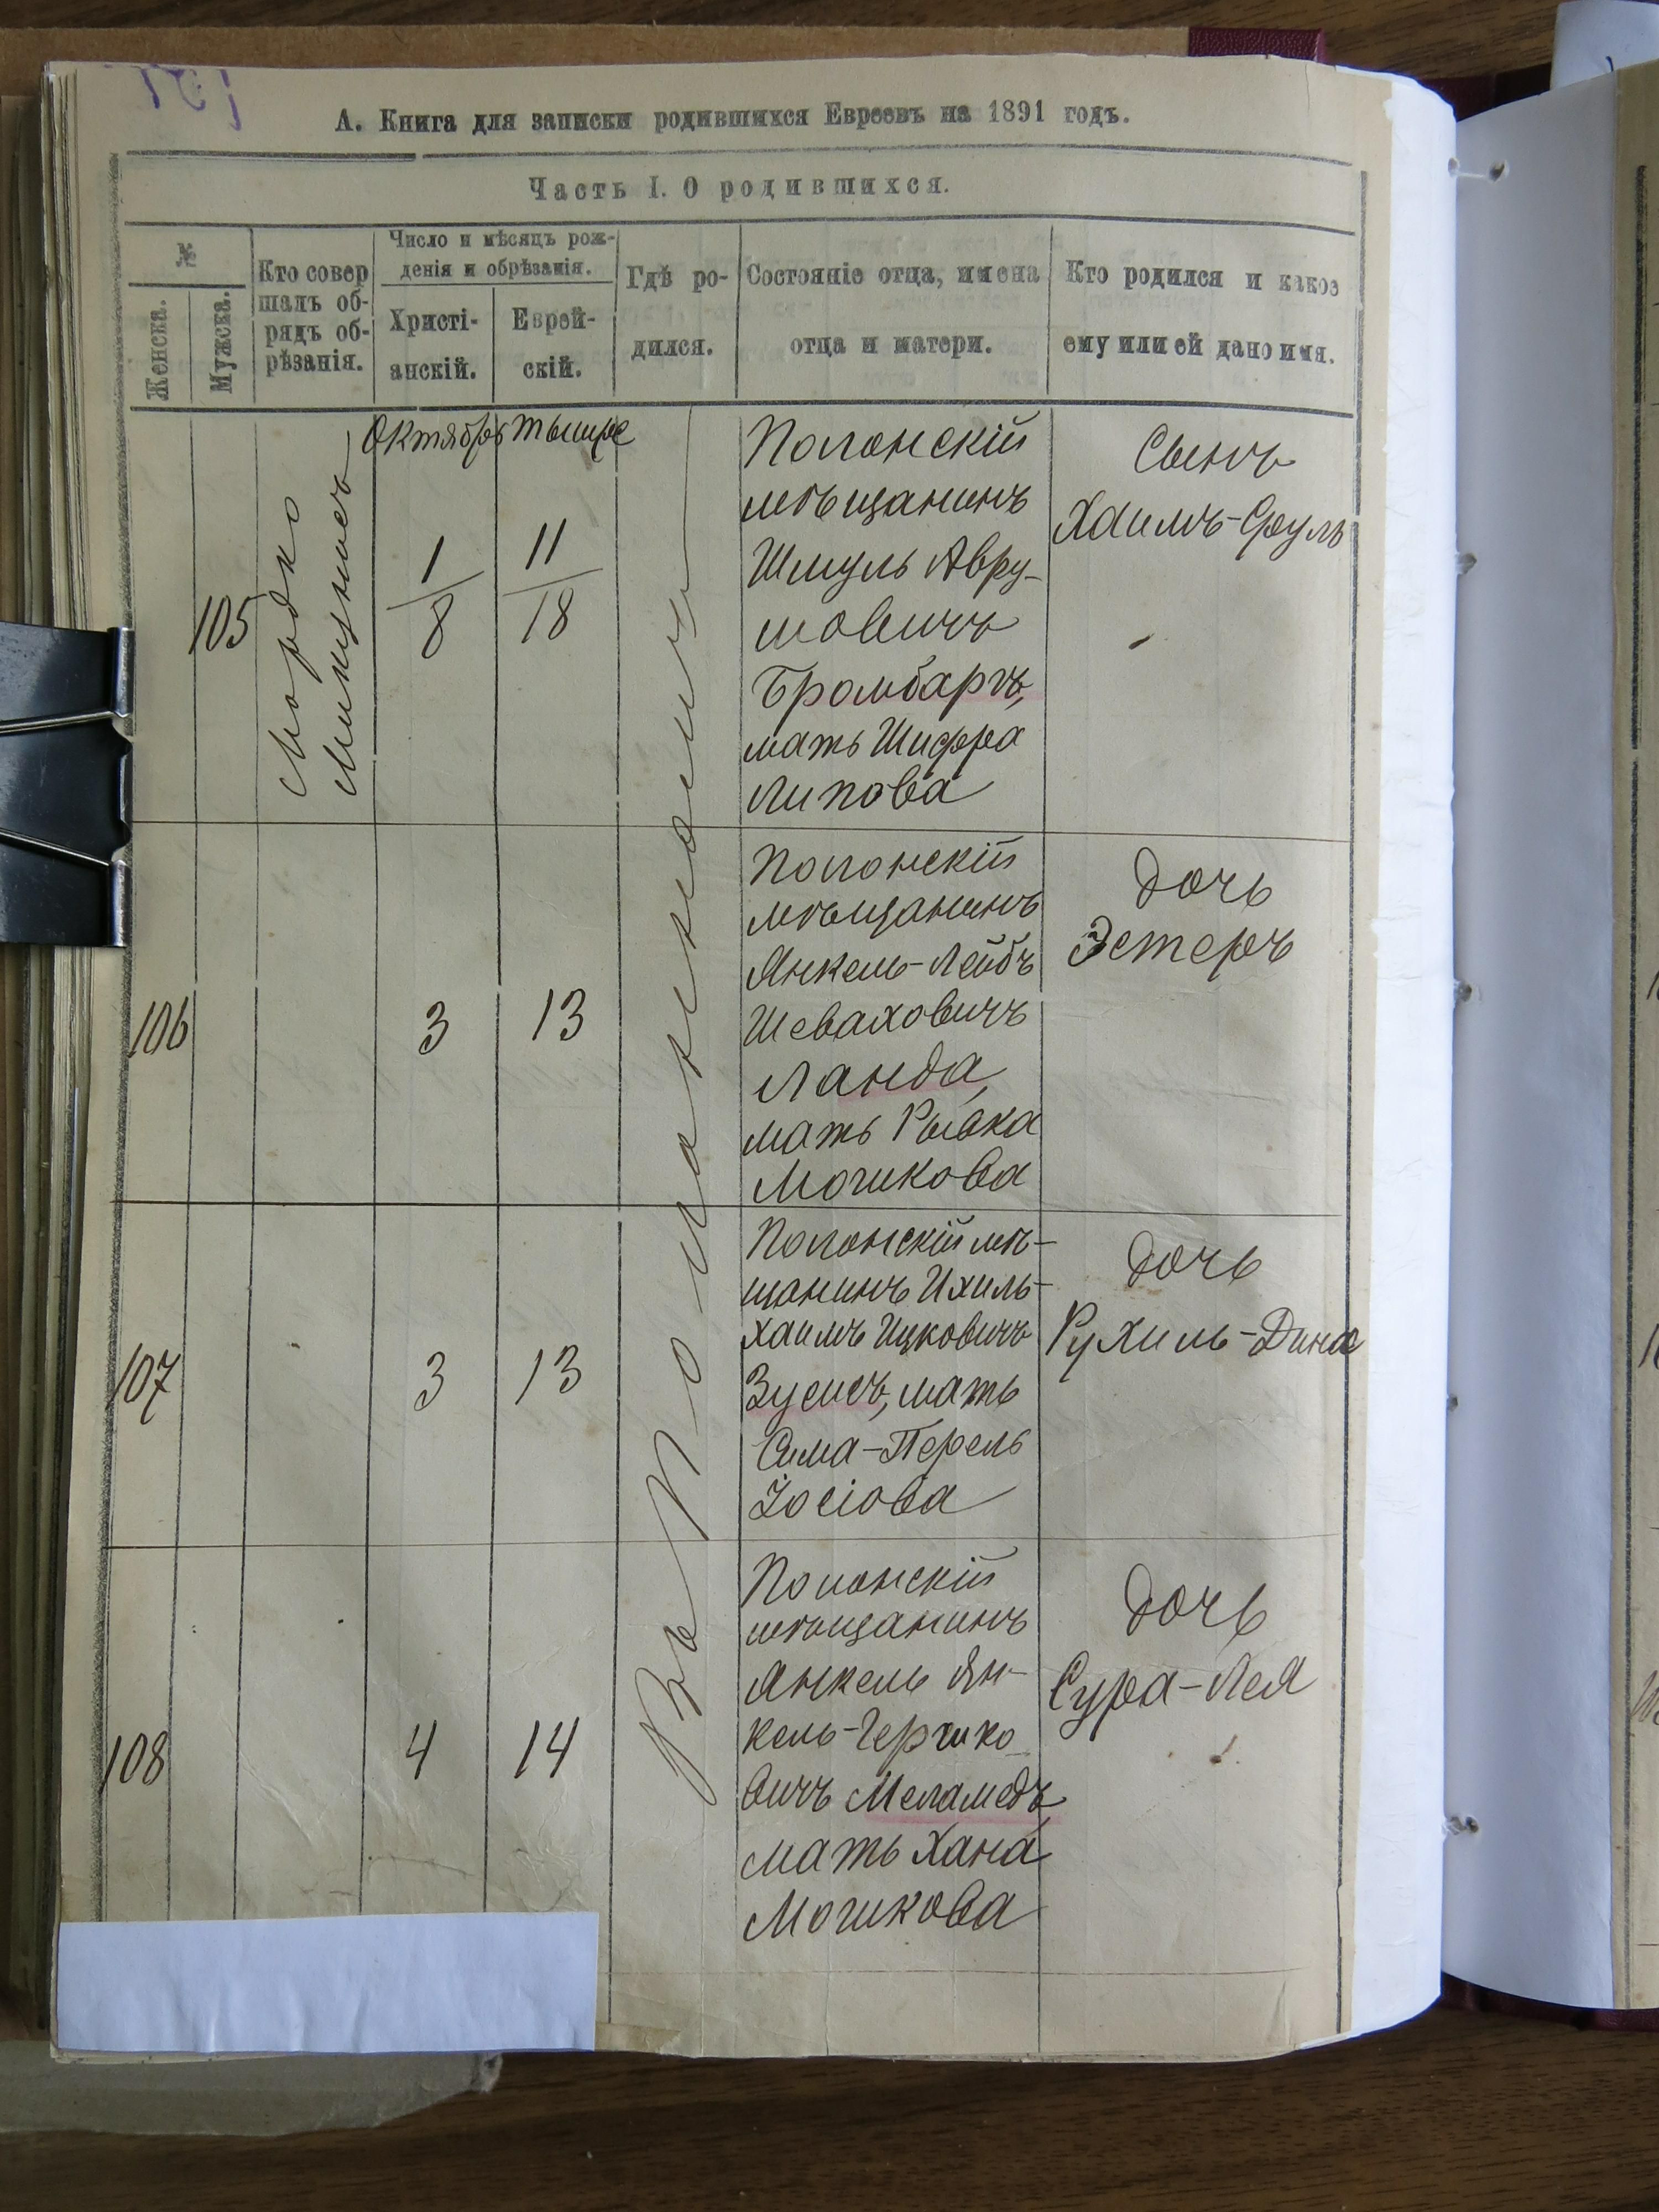 А. Книга для записки родившихся Евреевъ на 1891 годъ.
Часть I. О родившихся.
№
Женска.
Мужска.
Кто совер
шалъ об-
рядъ об-
рѣзанія.
Число и мѣсяцъ рож-
денія и обрѣзанія.
Христі-
анскій.
Еврей-
скій.
Гдѣ ро-
дился.
Состояніе отца, имена
отца и матери.
Кто родился и какое
ему или ей дано имя.
Октябрь
Тышре
105
Мордко
1
8
11
18
Полонскій
мѣщанинъ
Шмуль Авру-
мовичъ
Бромбаргъ,
мать Шифра
Липова
Сынъ
Хаимъ-Сруль
Въ Полонномъ
106
3
13
Полонскій
мѣщанинъ
Янкель-Лейбъ
Шеваховичъ
Ланда,
мать Рывка
Мошкова
Дочь
Эстеръ
107
3
13
Полонскій мѣ-
щанинъ Ихиль-
Хаимъ Ицковичъ
Зусисъ, мать
Сима-Перель
Іосіова
Дочь
Рухиль-Дина
108
4
14
Полонскій
мѣщанинъ
Янкель Ян-
кель-Гершко
вичъ Меламедъ,
мать Хана
Мошкова
Дочь
Сура-Лея